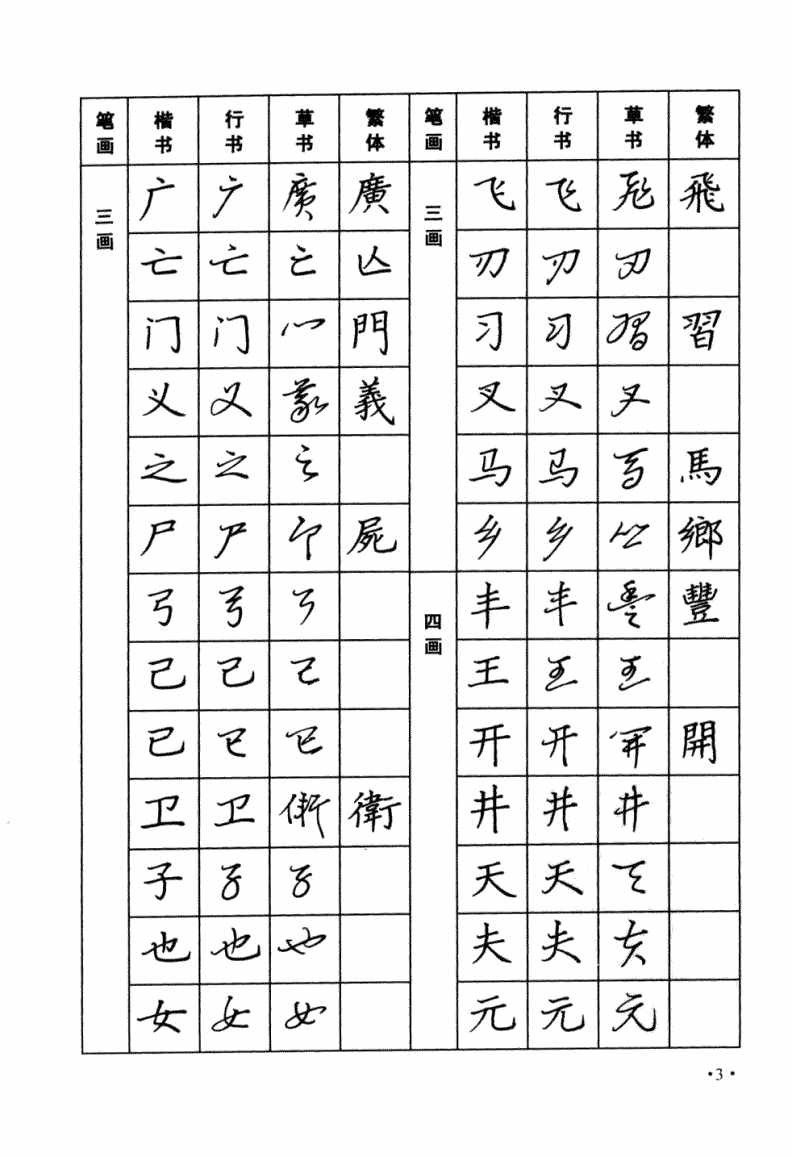 笔画 楷书 行书 草书 繁体 笔画 楷书 行书 草书 繁体
三画 广 广 廣 廣 三画 飞 飞 飛 飛
亡 亡 亡 亾 刃 刃 刃
门 门 门 門 习 习 習 習
义 义 義 義 叉 叉 叉
之 之 之 马 马 馬 馬
尸 尸 尸 屍 乡 乡 乡 鄉
弓 弓 弓 四画 丰 丰 豐 豐
己 己 己 王 王 王
已 已 已 开 开 開 開
卫 卫 衛 衛 井 井 井
子 子 子 天 天 天
也 也 也 夫 夫 夫
女 女 女 元 元 元
·3·